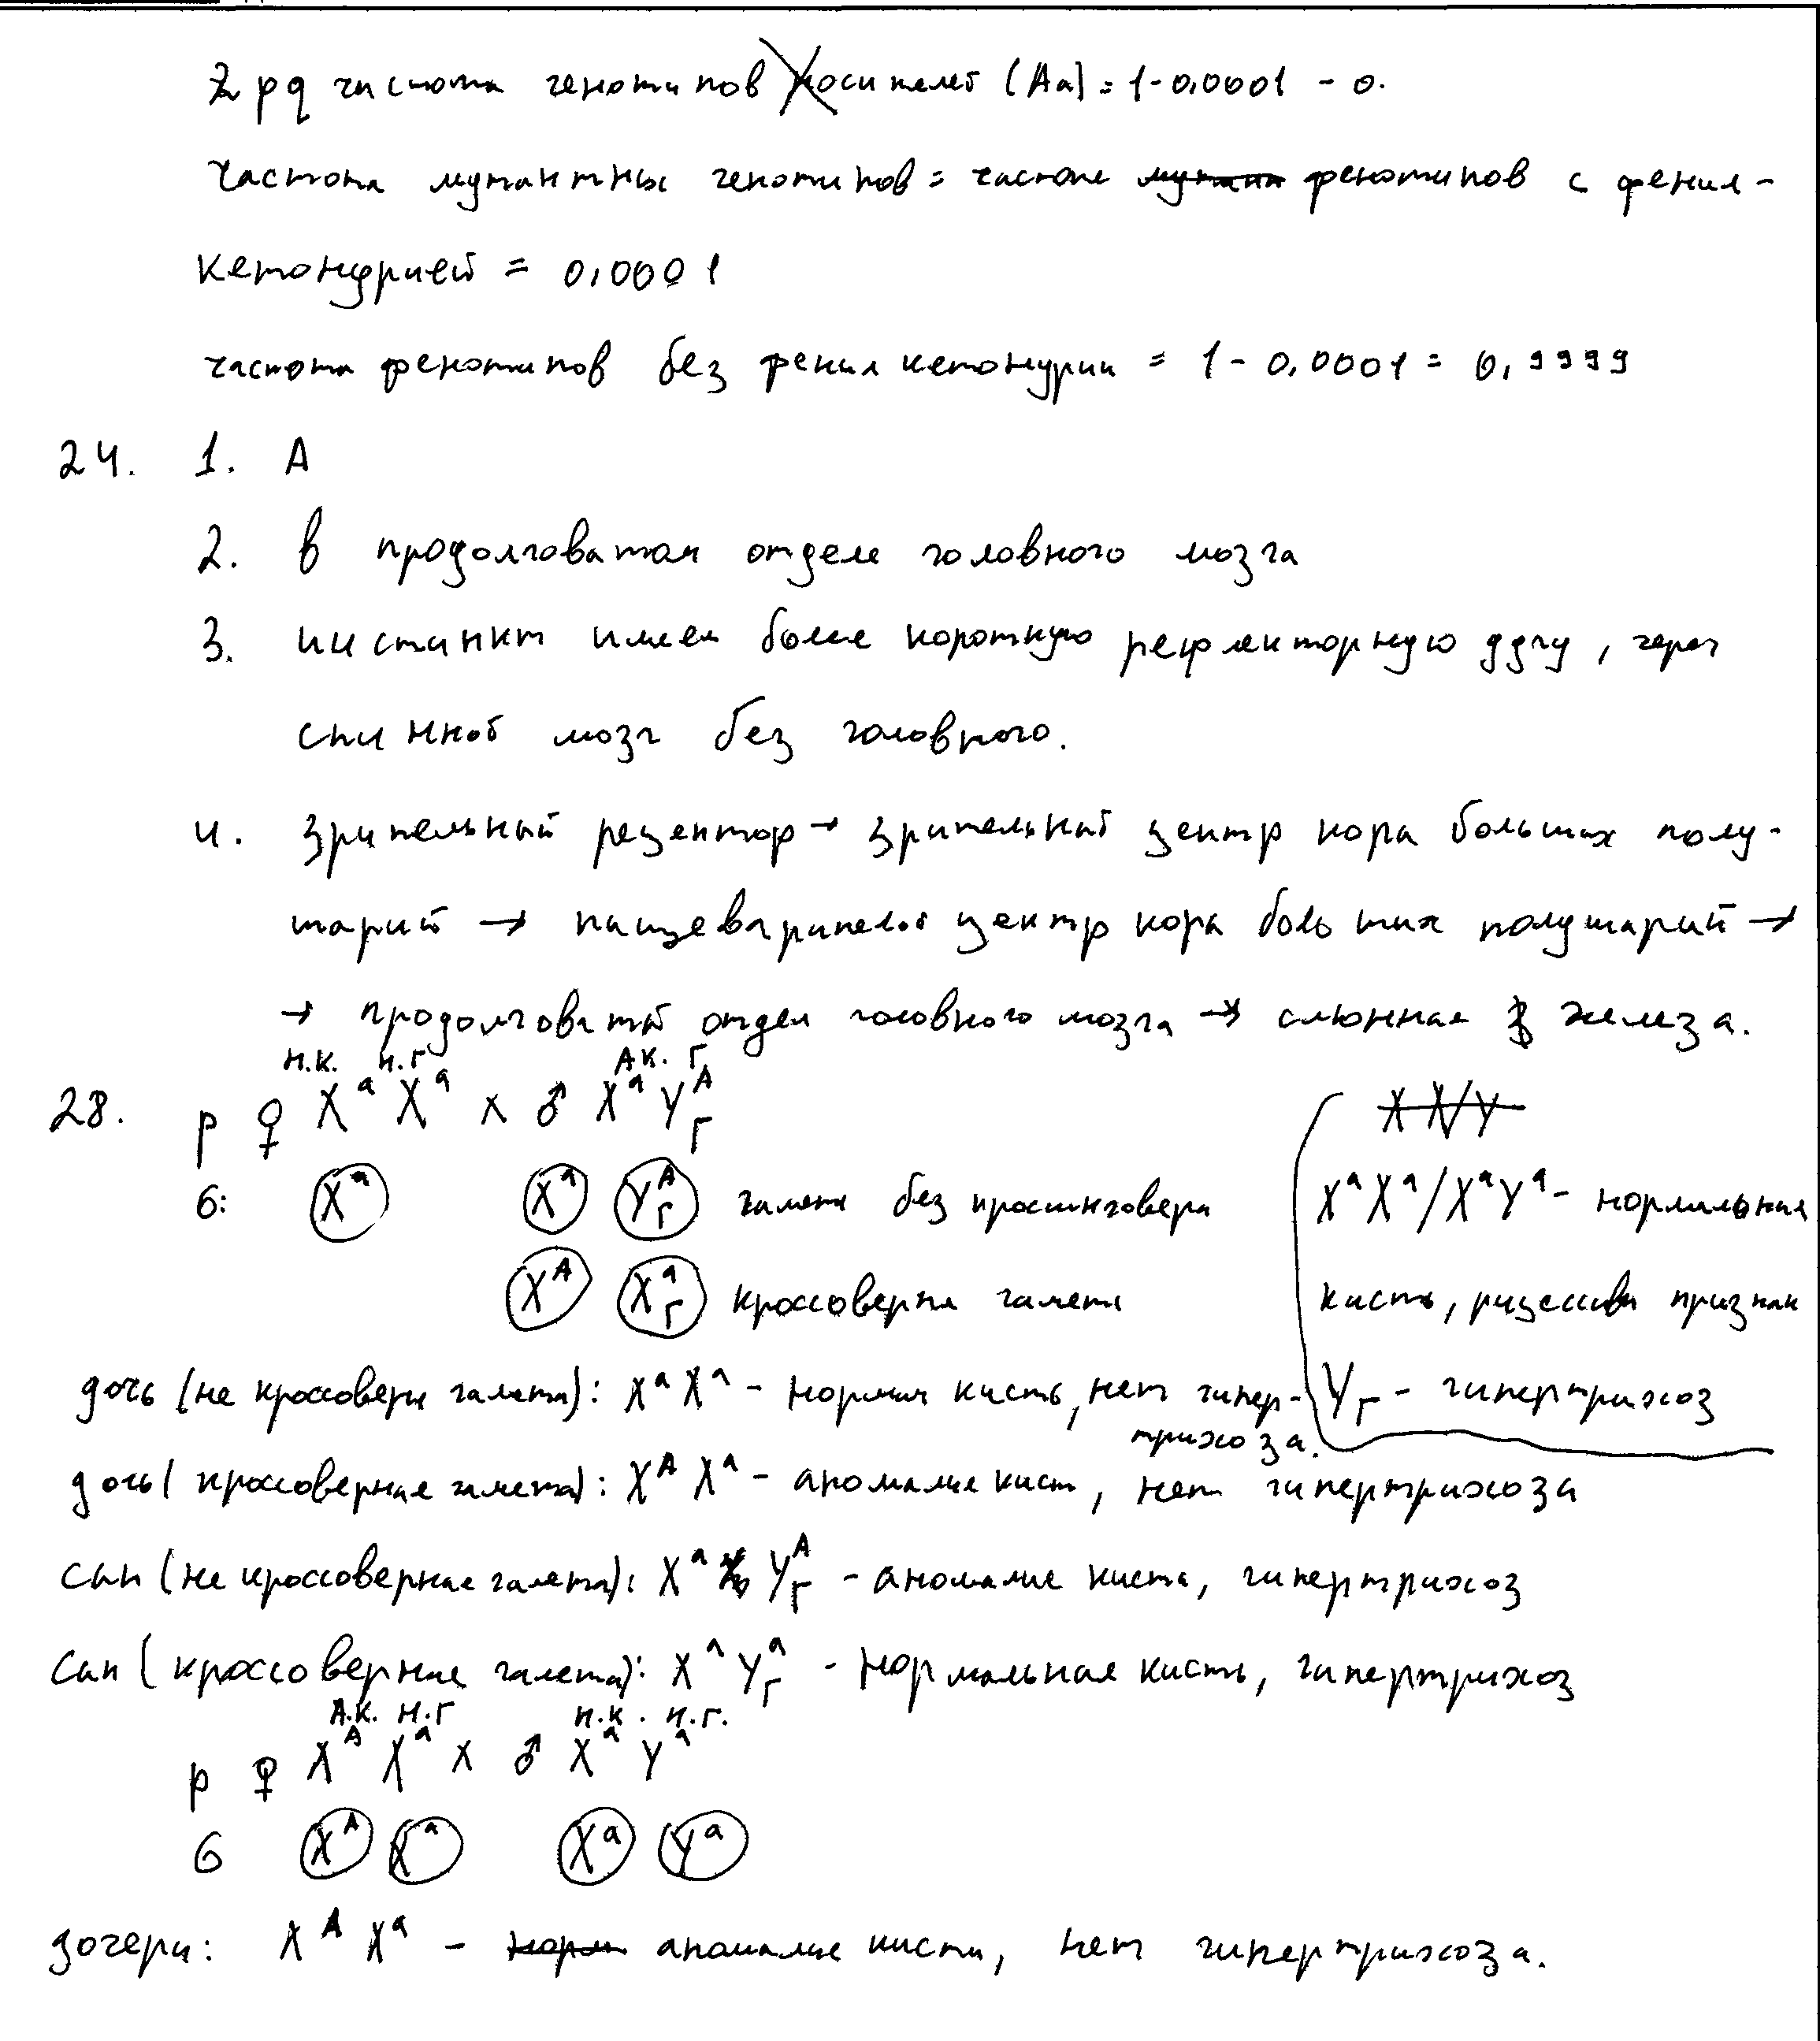 2pq чистота генотипов носителей (Аа) = 1-0,0001 - 0.
Частота мутантны генотипов = частоте фенотипов с фенил-
кетонурией = 0,0001
частота фенотипов без фенилкетонурии = 1 - 0,0001 = 0,9999
24. 1. А
2. В продолговатом отделе головного мозга
3. инстинкт имеет более короткую рефлекторную дугу, через
спинной мозг без головного.
4. Зрительный рецептор → зрительный центр кора больших полу-
шарий → пищеварителый центр кора больших полушарий →
→ продолговатый отдел головного мозга → слюнная железа.
н.к. н.г А к. Г.
28. P ♀ XᵃXᵃ x ♂ XᵃY^A_Г
X X/Y
G: Xᵃ Xᵃ Y^A_Г гаметы без кроссинговера
XᵃXᵃ/XᵃYᵃ - нормальная
X^A X^a_Г кроссоверные гаметы
кисть, рецессивн признак
дочь (не кроссоверн гамета): XᵃXᵃ - нормая кисть, нет гипер-
трихоза.
Y_Г - гипертрихоз
дочь (кроссоверная гамета): X^A Xᵃ - аномалие кист, нет гипертрихоза
сын (не кроссоверная гамета): Xᵃ Y^A_Г - аномалие кисти, гипертрихоз
Сын (кроссоверная гамета): Xᵃ Y^a_Г - нормальная кисть, гипертрихоз
А.К. Н.Г н.к. н.г.
P ♀ X^A Xᵃ x ♂ Xᵃ Yᵃ
G X^A Xᵃ Xᵃ Yᵃ
дочери: X^A Xᵃ - норм аномалие кисти, нет гипертрихоза.